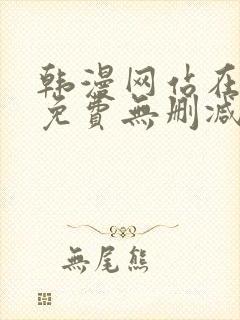 韩漫网站在
免費無刪减
無尾熊